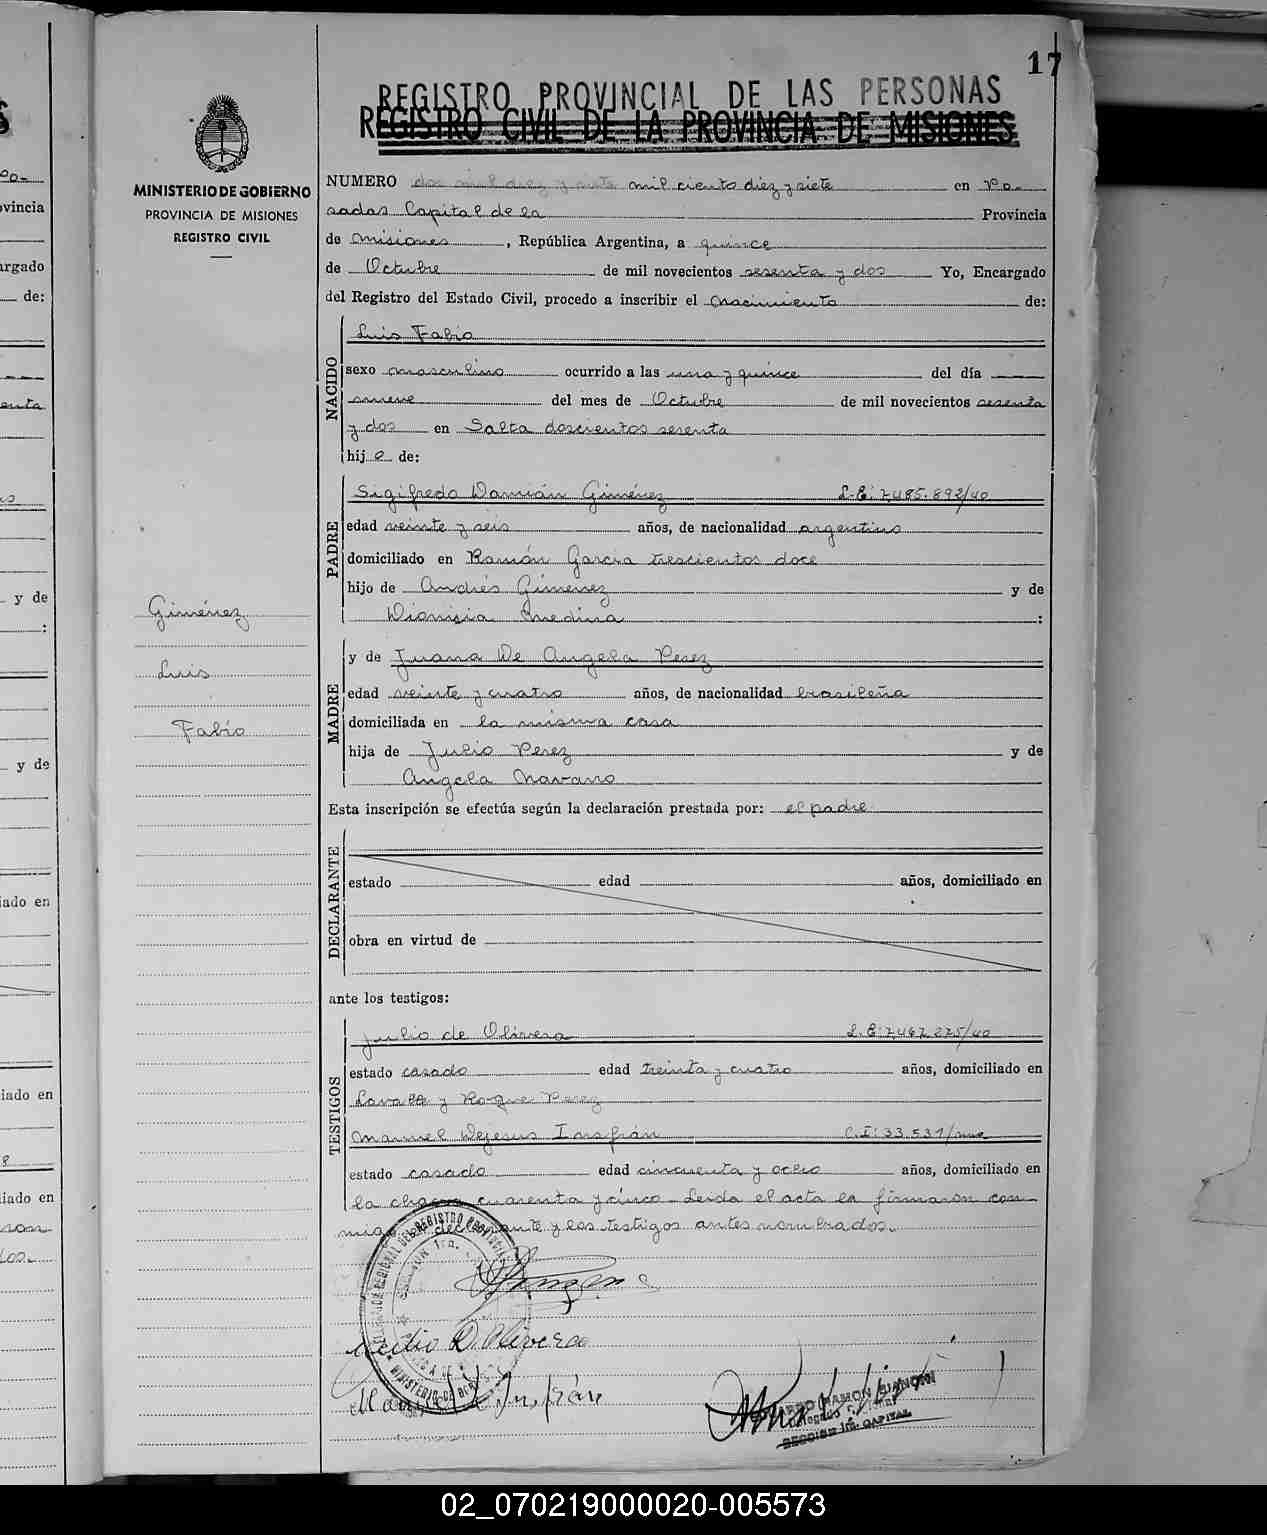 17
REGISTRO PROVINCIAL DE LAS PERSONAS
REGISTRO CIVIL DE LA PROVINCIA DE MISIONES
MINISTERIO DE GOBIERNO
PROVINCIA DE MISIONES
REGISTRO CIVIL
NUMERO dos mil diez y siete mil ciento diez y siete en Po-
sadas Capital de la Provincia
de Misiones, República Argentina, a quince
de Octubre de mil novecientos sesenta y dos Yo, Encargado
del Registro del Estado Civil, procedo a inscribir el nacimiento de:
NACIDO
Luis Fabio
sexo masculino ocurrido a las una y quince del día
nueve del mes de Octubre de mil novecientos sesenta
y dos en Salta doscientos sesenta
hijo de:
PADRE
Sigifredo Damián Giménez L.E: 7.485.892/40
edad veinte y seis años, de nacionalidad argentino
domiciliado en Ramón García trescientos doce
hijo de Andrés Gimenez y de
Dionisia Medina :
Giménez
Luis
Fabio
MADRE
y de Juana De Angela Perez
edad veinte y cuatro años, de nacionalidad brasileña
domiciliada en la misma casa
hija de Julio Perez y de
Angela Navarro
Esta inscripción se efectúa según la declaración prestada por: el padre
DECLARANTE
estado edad años, domiciliado en
obra en virtud de
ante los testigos:
TESTIGOS
Julio de Olivera L.E: 7.467.275/40
estado casado edad treinta y cuatro años, domiciliado en
Lavalle y Roque Perez
Manuel Dejesus Insfrán C.I: 33.531/mnes
estado casado edad cincuenta y ocho años, domiciliado en
la chacra cuarenta y cinco - Leida el acta la firmaron con-
migo el declarante y los testigos antes nombrados.
Julio D. Olivera
Manuel D. Insfrán
RAMON BIANCHI
SECCION 1ra. CAPITAL
02_070219000020-005573